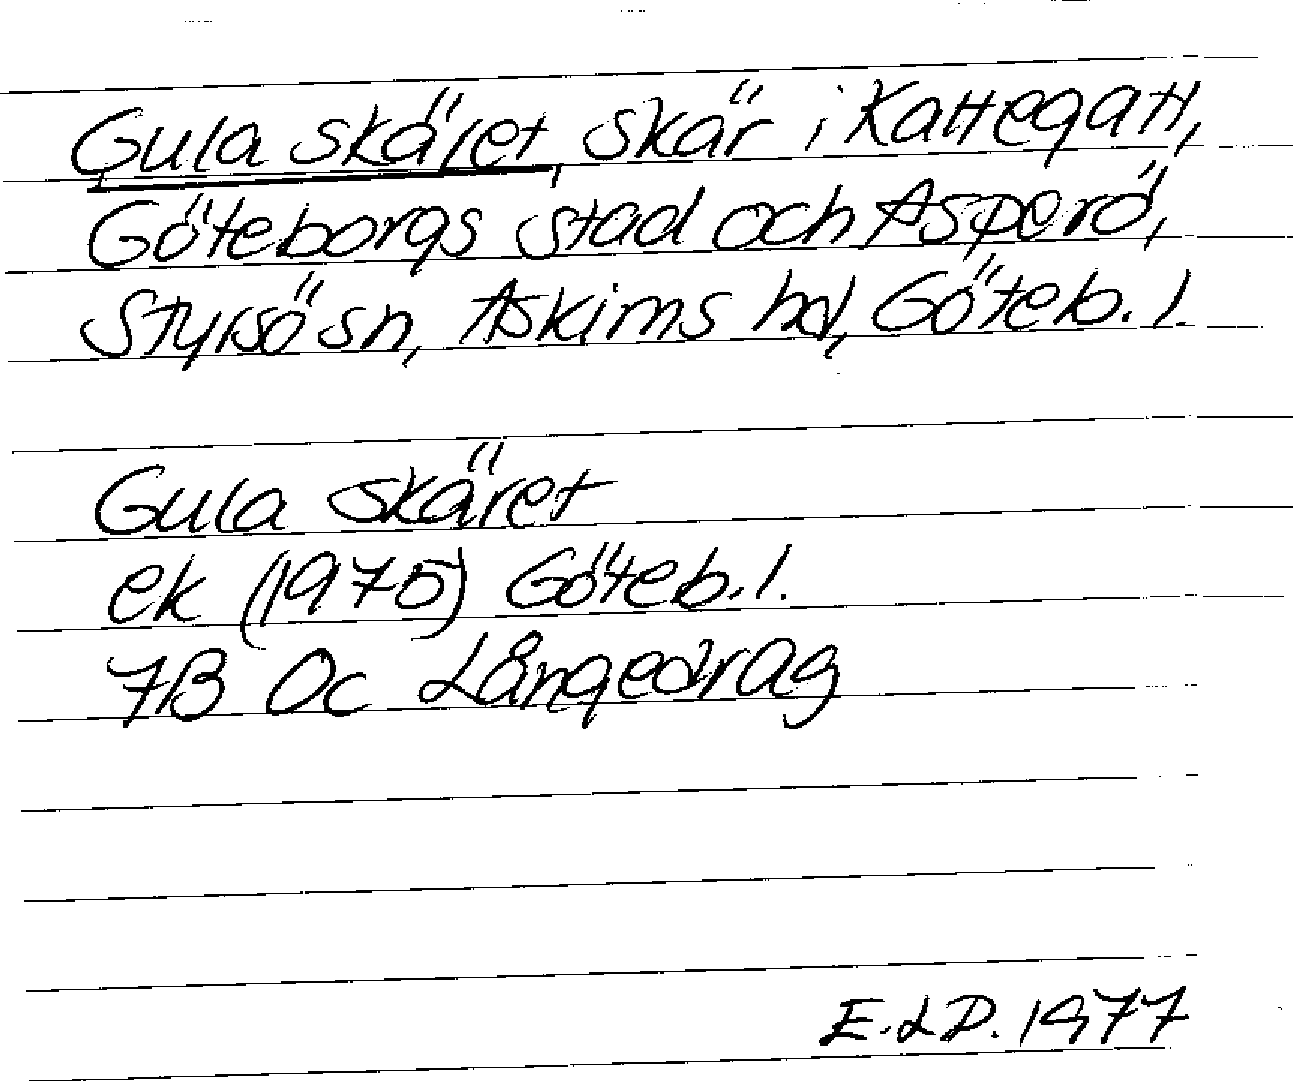 Gula skäret, skär i Kattegatt,
Göteborgs stad och Asperö,
Styrsö sn, Askims hd, Göteb. l.
Gula skäret
ek (1975) Göteb. l.
7B Oc Långedrag
E.LD. 1977